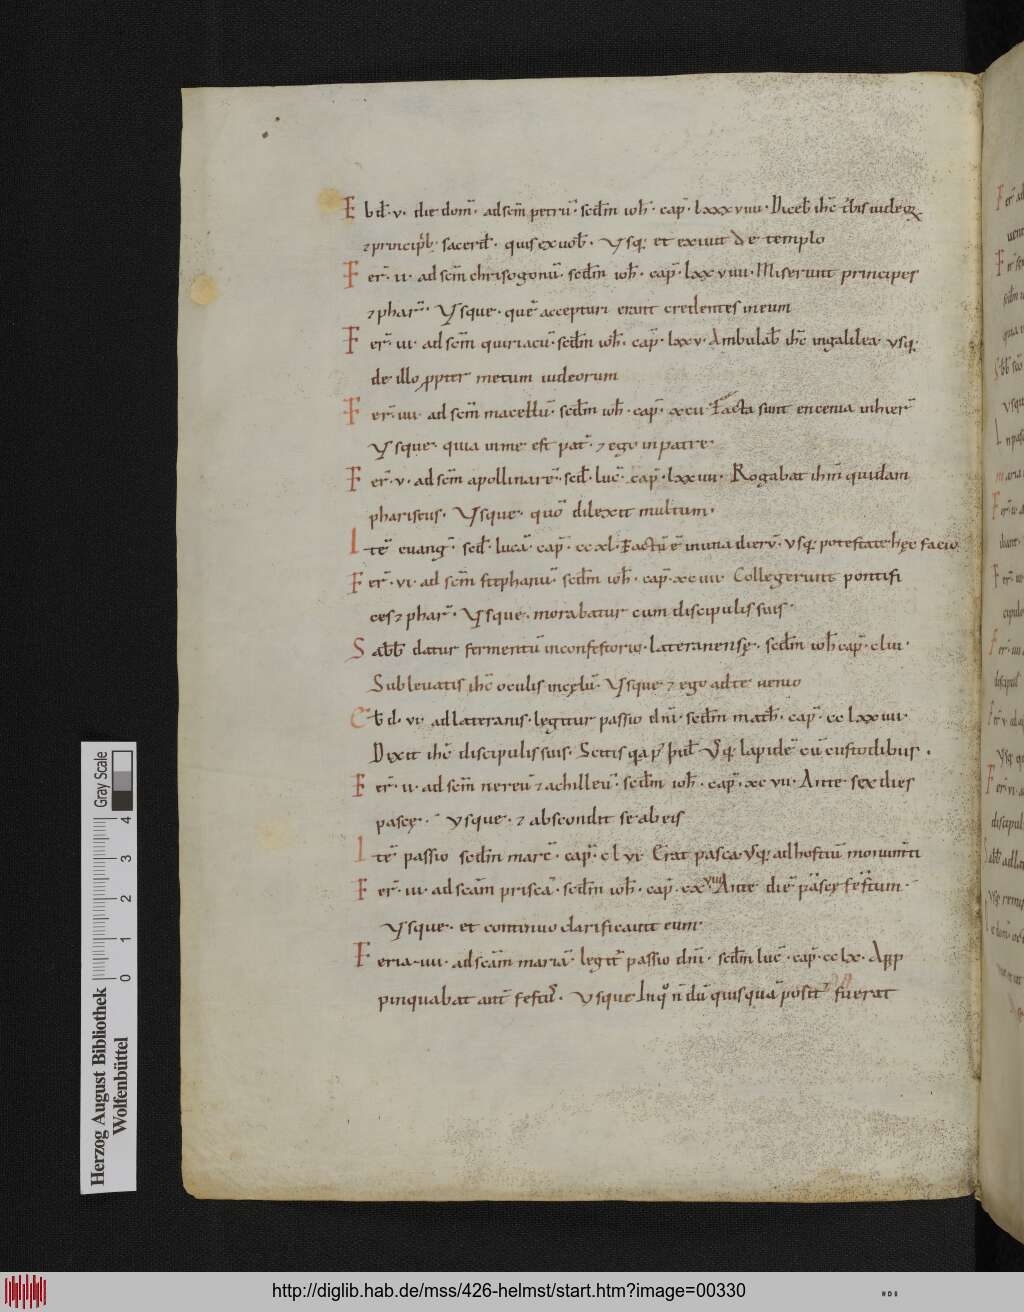 Ebđ· v· die dom̄· ad scm̄ petrū· scđm ioħ· cap̄· lxxxviiii· Diceb̄ ihc̄ t̄bis iudeoꝝ
⁊ principib̄· sacerđ· quis ex uob̄· Ysq; et exiuit de templo
Fer̄· ii· ad scm̄ chrisogonū· scđm ioħ· cap̄· lxxviiii· Miserunt principes
⁊ phar̄· Ysque· quē accepturi erant credentes in eum
Fer̄· iii· ad scm̄ quiriacū· scđm ioħ· cap̄· lxxv· Ambulab̄ ihc̄ in galilea vsq;
de illo ꝓpter metum iudeorum
Fer̄· iiii· ad scm̄ macellū· scđm ioħ· cap̄· xcii· Facta sunt encenia in hier̄
Ysque· quia in me est pat̄· ⁊ ego in patre·
Fer̄· v· ad scm̄ apollinarē· scđ· luc̄· cap̄· lxxiiii· Rogabat ihm̄ quidam
phariseus· Ysque· quō dilexit multum·
Itē euanḡ· scđ· lucā· cap̄· ccxl· Factū ē in una dierū· vsq; potestate hęc facio
Fer̄· vi· ad scm̄ stephanū· scđm ioħ· cap̄· xciiii· Collegerunt pontifi
ces ⁊ phar̄· Ysque· morabatur cum discipulis suis·
Sabb̄ datur fermentū in consestorio· lateranensę· scđm ioħ cap̄· clvi·
Subleuatis ihc̄ oculis in cęlū· Ysque ⁊ ego ad te uenio
Eb̄d· vi· ad lateranis· legitur passio dnī· scđm matħ· cap̄· cclxxiiii·
Dixit ihc̄ discipulis suis· Scitis qa p̄ ƀid̄ Vsq; lapidē cū custodibus·
Fer̄· ii· ad scm̄ nereū ⁊ achilleū· scđm ioħ· cap̄· xcvii· Ante sex dies
pascę· ysque· ⁊ abscondit se ab eis
Itē passio scđm marc̄· cap̄· clvi· Erat pasca Vsq; ad hostiū monumti
Fer̄· iii· ad scām priscā· scđm ioħ· cap̄· cxviii Ante diē pascę festum·
Ysque· et continuo clarificauit eum·
Feria· iiii· ad scām mariā· legit̄ passio dnī· scđm luc̄· cap̄· cclx· App
pinquabat aut̄ fest̄· Vsque In qo n̄ dū quisquā posit̄ fuerat
Herzog August Bibliothek
Wolfenbüttel
0 1 2 3 4
Gray Scale
http://diglib.hab.de/mss/426-helmst/start.htm?image=00330